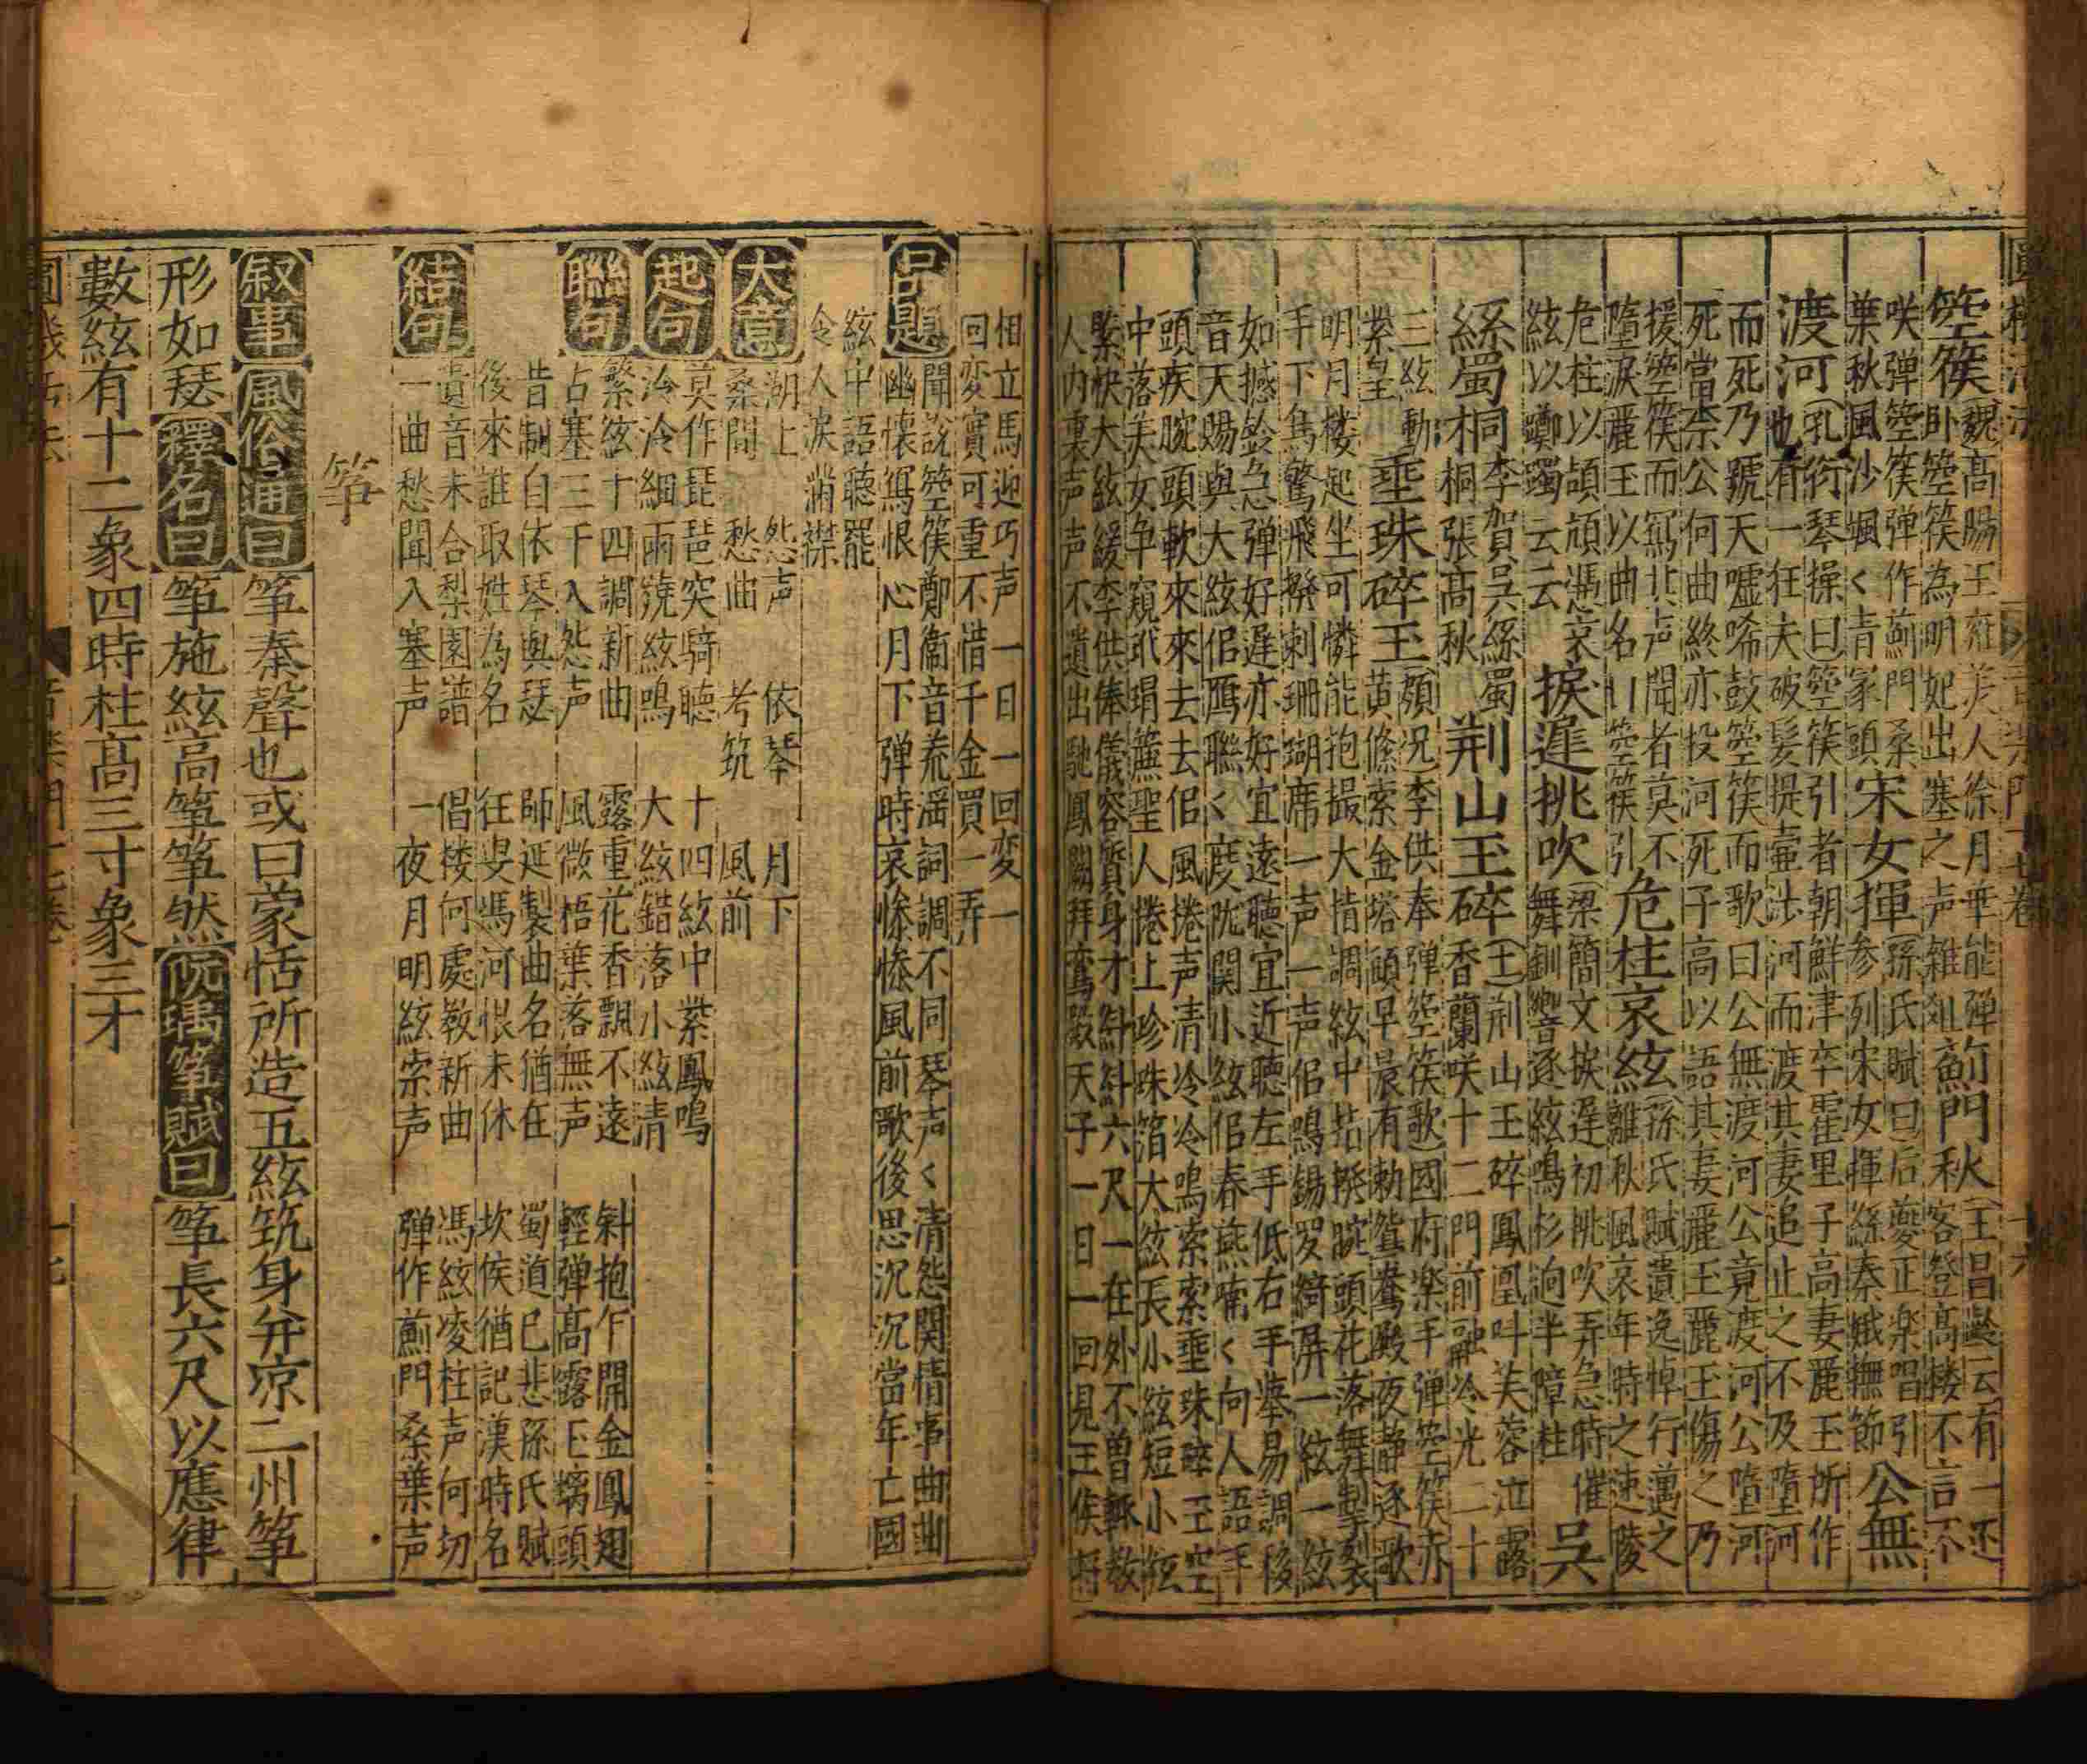 箜篌
魏高陽王雍美人徐月華能弹
卧箜篌為明妃出塞之声
薊門秋
王昌齡云有一迁
客登高楼不言不
咲弹箜篌弹作薊門桑
葉秋風沙颯く青冢頭
宋女揮
孫氏賦曰后夔正楽唱引
参列宋女揮絲秦娥撫節
公無
渡河
乳
也
衍琴操曰箜篌引者朝鮮津卒霍里子高妻麗玉所作
有一狂夫破髮提壷涉河而渡其妻追止之不及墮河
而死乃號天嘘唏鼓箜篌而歌曰公無渡河公竟渡河公墮河
死當柰公何曲終亦投河死子高以語其妻麗玉麗玉傷之乃
援箜篌而寫其声聞者莫不
墮淚麗玉以曲名曰箜篌引
危柱哀絃
孫氏賦遺逸悼行邁之
離秋風哀年時之速陵
危柱以頡頏憑哀
絃以躑躅云云
捩遲挑吹
梁簡文捩遅初挑吹弄急時催
舞釧響逐絃鳴杉逈半障柱
吳
絲蜀桐
李賀吳絲蜀
桐張高秋
荆山玉碎
上荆山玉碎鳳凰叫芙蓉泣露
香蘭咲十二門前融冷光二十
三絃動
紫皇
垂珠碎玉
顧况李供奉弹箜篌歌國府楽手弹箜篌赤
黄條索金塔頭早晨有勅鴛鴦殿夜静逐歌
明月楼起坐可憐能抱撮大指調絃中指撥腕頭花落舞掣裂
手下鳥驚飛撥剌珊瑚席一声一声佀鳴錫罗綺屏一絃一絃
如撼鈴急弹好遅亦好宜遠聴宜近聴左手低右手舉易調移
音天賜與大絃佀鴈聯く度隴関小絃佀春燕喃く向人語手
頭疾腕頭軟來來去去佀風捲声清冷冷鳴索索垂珠碎玉空
中落美女争窺玳瑁簾聖人捲上珍珠箔大絃長小絃短小絃
緊快大絃緩李供俸儀容質身才斜斜六尺一在外不曽輒教
人内裏声声不遺出馳鳳闕拜鸞殿天子一日一回見王侯將
相立馬迎巧声一日一回変一
回変實可重不惜千金買一弄
品題
聞說箜篌鄭衛音荒滛詞調不同琴声く清怨関情事曲曲
幽懷寫恨心月下弹時哀惨惨風前歌後思沉沉當年亡國
絃中語聴罷
令人淚滿襟
大意
湖上　怨声　依琴　月下
桑間　愁曲　考筑　風前
起句
莫作琵琶突騎聴　十四紋中紫鳳鳴
泠泠細雨鐃絃鳴　大絃錯落小絃清
聯句
繁絃十四調新曲　露重花香飄不遠　斜抱乍開金鳳翅
占塞三千入怨声　風微梧葉落無声　輕弹高露玉螭頭
昔制白依琴與瑟　師延製曲名猶在　蜀道已悲孫氏賦
後來誰取姓為名　狂叟馮河恨未休　坎侯猶記漢時名
結句
遺音未合梨園譜　倡楼何處敎新曲　馮絃凌柱声何切
一曲愁聞入塞声　一夜月明絃索声　弹作薊門桑葉声
筝
叙事
風俗通曰
筝秦聲也或曰蒙恬所造五絃筑身并凉二州筝
形如瑟
釋名曰
筝施絃高筝筝然
阮瑀筝賦曰
筝長六尺以應律
數絃有十二象四時柱高三寸象三才